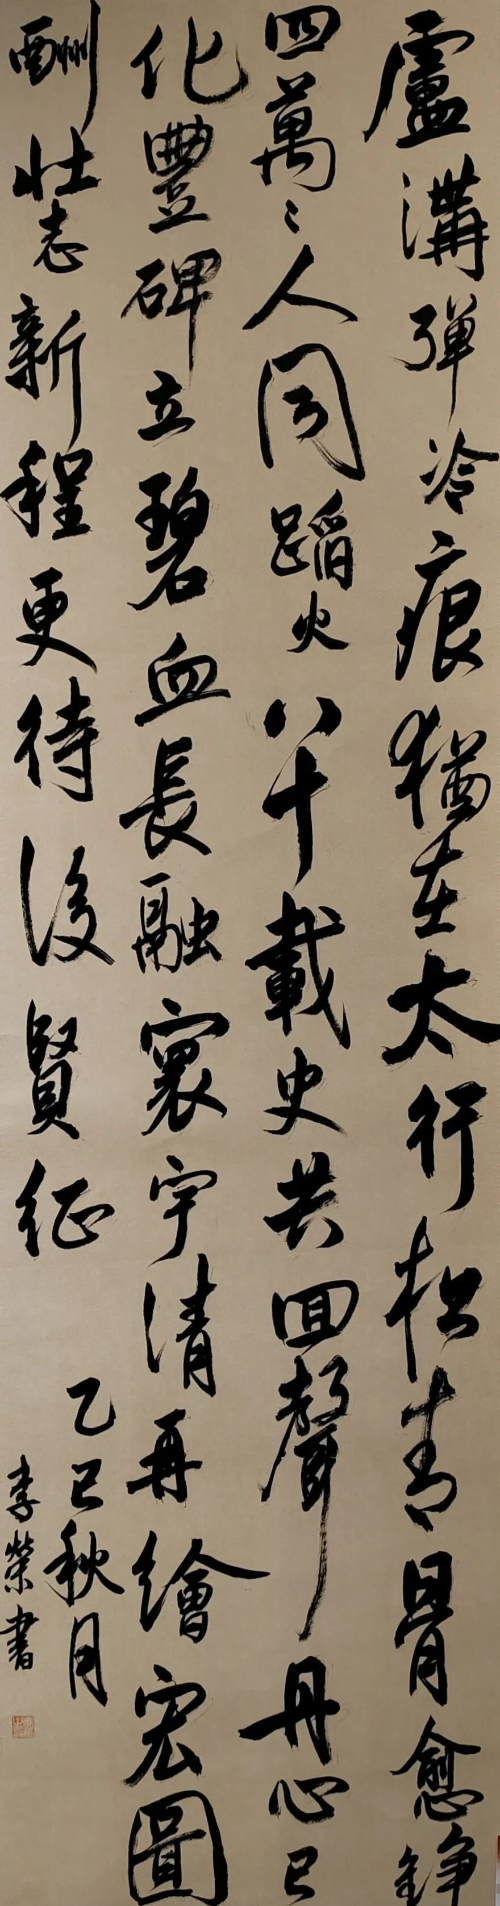 盧溝彈冷痕猶在太行松青骨愈錚
四萬〻人同蹈火八十載史共回聲丹心已
化豐碑立碧血長融寰宇清再繪宏圖
酬壯志新程更待後賢征
乙巳秋月
李榮書